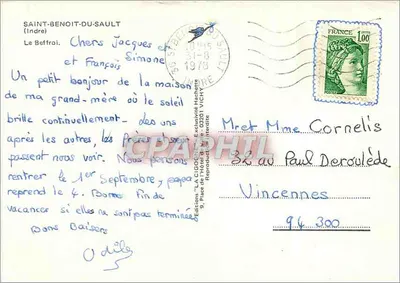 SAINT-BENOIT-DU-SAULT
(Indre)
Le Beffroi.
Chers Jacques et
et François Simone
Un petit bonjour de la maison
de ma grand-mère où le soleil
brille continuellement. des uns
après les autres, les
passent nous voir. Nous pensons
rentrer le 1er Septembre, papa
reprend le 4. Bonne fin de
vacances si elles ne sont pas terminées
Bons Baisers
Odile
36 ST BENOIT DU SAULT
31-8
1978
INDRE
FRANCE
1,00
Mr et Mme Cornelis
32 av Paul Deroulède
Vincennes
94 300
CPAPHIL
Editions "LA CIGOGNE"
03201 VICHY
Reproduction interdite